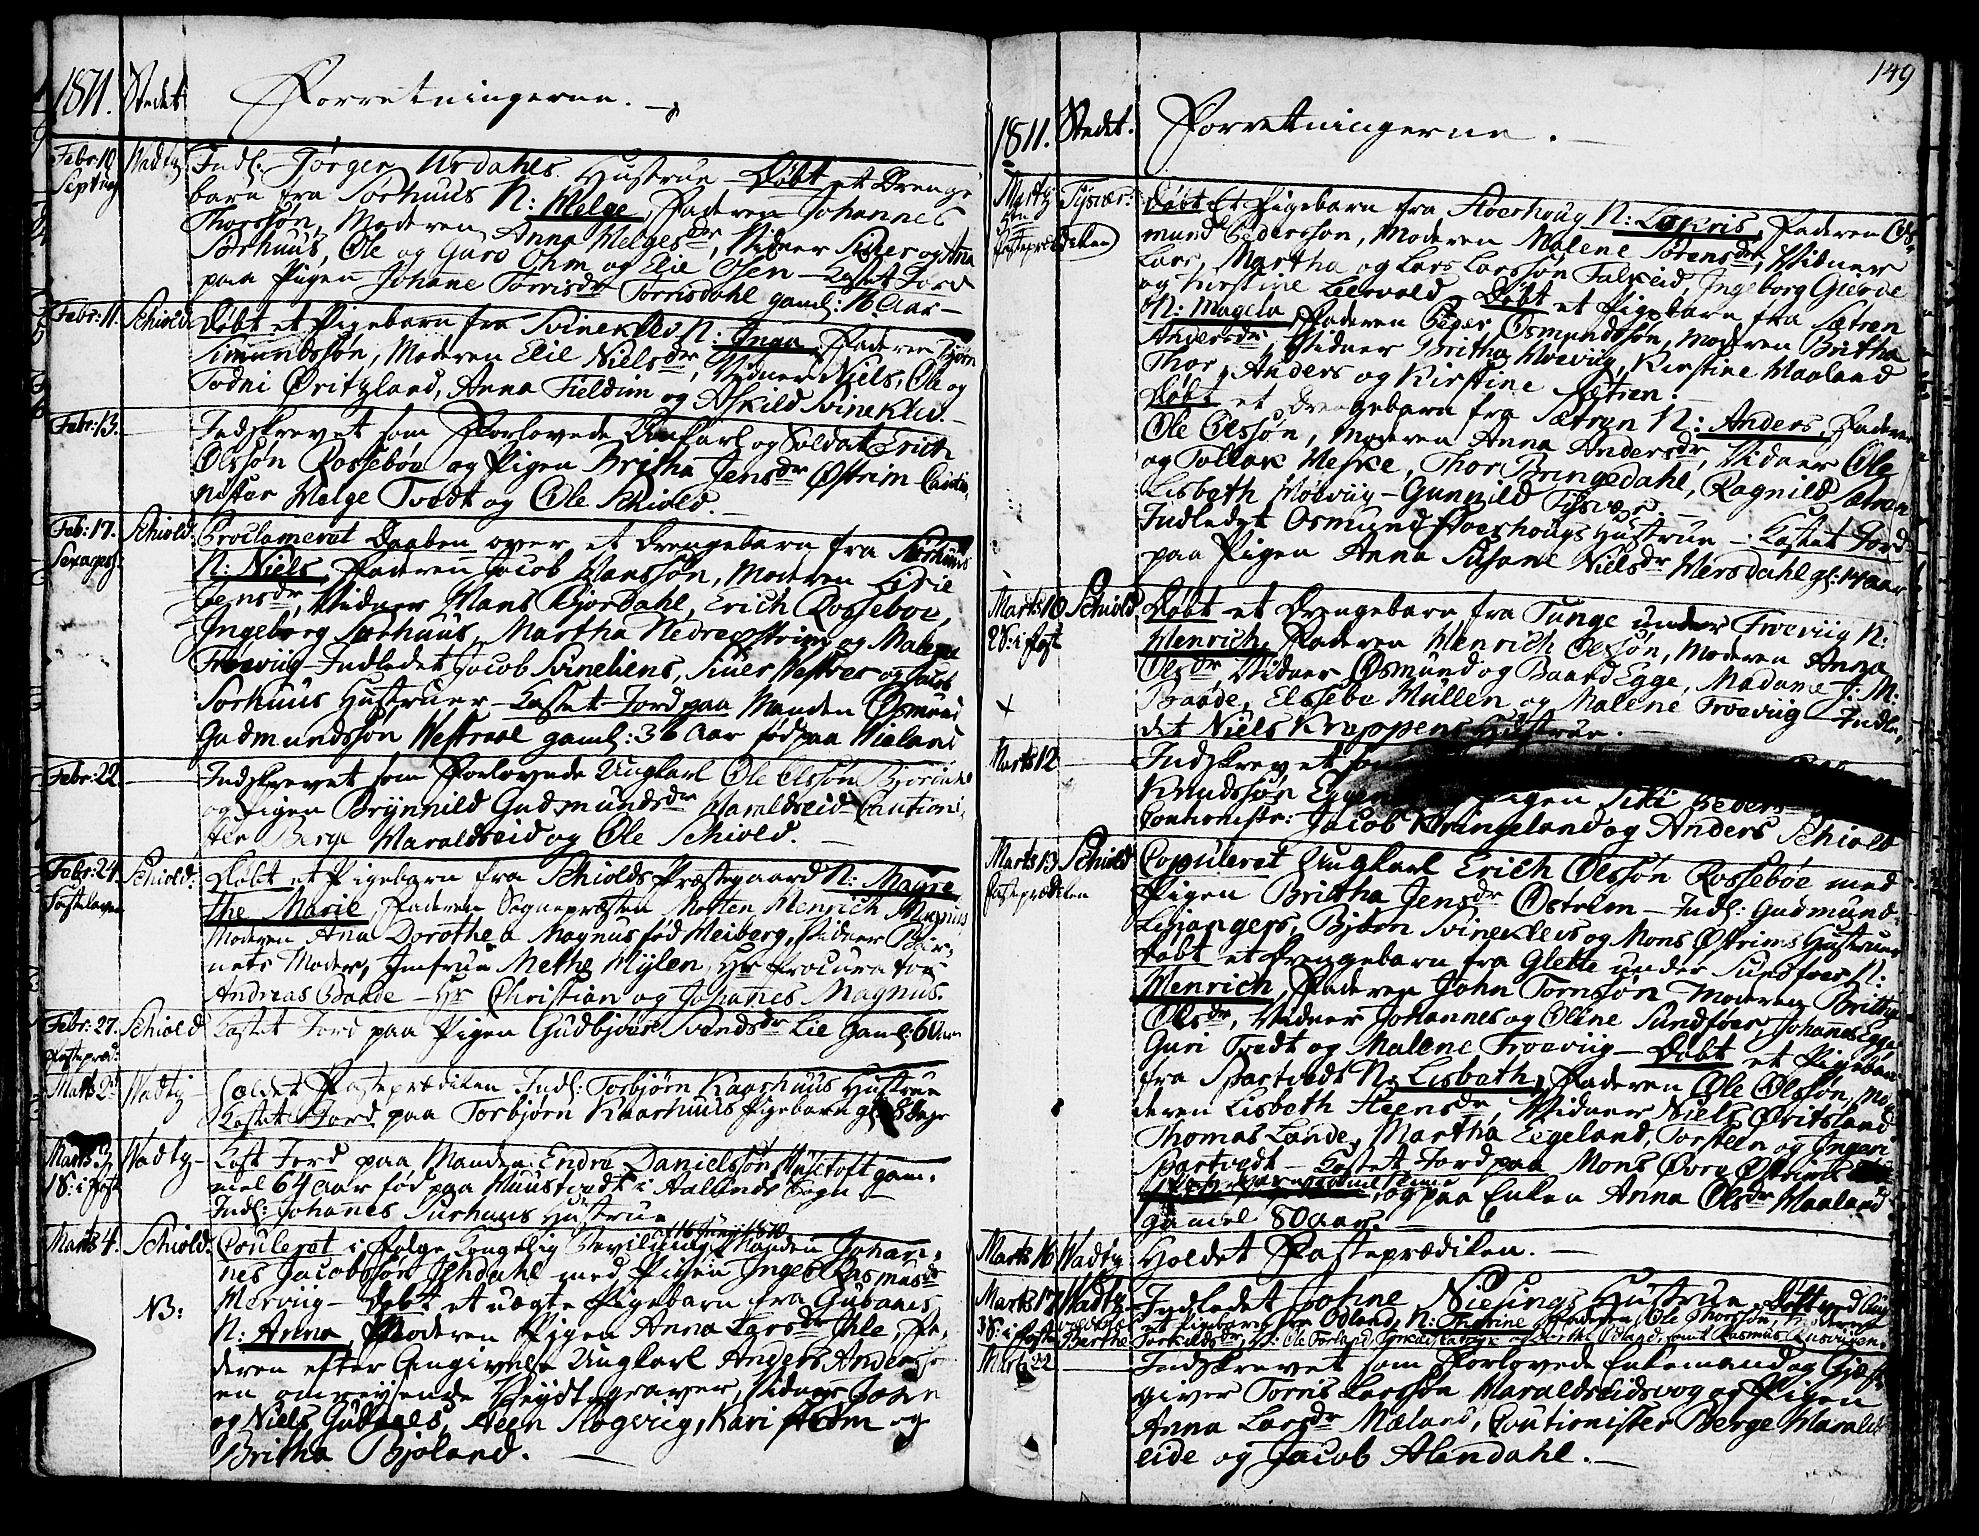 1811. Stedet Forretningerne.
Febr: 10 Septuag Vadty Indl: Jørgen Urdahls Hustrue Døbt et Drenge
barn fra Sørhuus N: Helge, Faderen Johannes
Thorssøn, Moderen Anna Helgesdr, Vidner Siver og Ana
Sørhuus, Ole og Guro Ohm og Elie Osen - Kastet Jord
paa Pigen Johane Torrisdr Torrisdahl gaml: 16 Aar -
Febr: 11. Schiold Døbt et Pigebarn fra Svinekléo N: Inga, Faderen Bjørn
Simundssøn, Moderen Elie Nielsdr, Vidner Niels, Ole og
Todni Østritzland, Anna Fieldim og Askild Svineklev.
Febr: 13. Indskrevet som Forlovede Ungkarl og Soldat Erich
Olssøn Rossebøe og Pigen Britha Jensdr Østrim Cautio-
nistar Helge Tvedt og Ole Schiold.
Feb: 17. Sexages: Schiold Proclameret Daaben over et Drengebarn fra Sørhuus
N: Niels, Faderen Jacob Hanssøn, Moderen Lidie
Jensdr, Vidner Hans Bjordahl, Erich Rosseboe,
Ingeborg Sørhuus, Martha Nedreøstrim og Malene
Frøeviig - Indledet Jacob Svineliens, Siuer Westres og Jacob
Sørhuus Hustruer - Kastet Jord paa Manden Osmund
Gudmundssøn Westraae gaml: 36 Aar fød paa Wieland
Febr: 22 Indskrevet som Forlovede Ungkarl Ole Olssøn Bjordahl
og Pigen Brynnild Gudmundsdr Haraldseid Cautioni-
ster Berge Haraldseid og Ole Schiold.
Febr: 24. Fastelaven Schiold: Døbt et Pigebarn fra Schiolds Præstegaard N: Magre
the Marie, Faderen Sognepræsten Morten Henrich Magnus
Moderen Ana Dorothea Magnus fød Heiberg, Vidner Bar-
nets Moder, Jmfrue Methe Mylen, Hr Procurator
Andreas Baade - Hr Christian og Johanes Magnus.
Febr: 27. Fastepræd: Schiold Kastet Jord paa Pigen Gudbjour Svendsdr Lie Gaml: 6 Aar
Marts 2d Vadty Holdet Fasteprædiken Indl: Torbjørn Kaarhuus Hustrue
Kastet Jord paa Torbjørn Kaarhuus Pigebarn gl: 8 Dage
Marts 3 1S: i fast Vadty Kast Jord paa Manden Endre Danielssøn Hustoft gam-
mel 64 Aar fød paa Huustvedt i Aalunds Sogn
Indl: Johanes Surhuus Hustrue
Marts 4. Schiold: Copuleret i følge Kongelig Bevilling af 16 Junii 1810 Manden Johan-
nes Jacobssøn Ilhdahl med Pigen Inger Rasmusdr
NB: Merviig - Døbt et uægte Pigebarn fra Gubanes
N: Anna, Moderen Pigen Anna Larsdr Ihle, Fa-
deren efter Angivelse Ungkarl Anders Anderssøn
en omreysende Heydtegraver, Vidner Jone
og Niels Gudanes, Steen Slogviig, Kari Strøm og
Britha Bjoland.
149
1811. Stedet. Forretningerne.
Marty 6ten Fasteprædiken Tysvær: Døbt Et Pigebarn fra Stoerhoug N: Lakris, Faderen Os-
mund Pederssøn, Moderen Malene Sørensdr, Vidner
Lars, Martha og Lars Larssøn Falkeid, Ingeborg Gievde
og Kirstine Leervold - Døbt et Pigebarn fra Sætren
N: Magela, Faderen Peder Osmundssøn, Moderen Britha
Andersdr, Vidner Britha Høeviig, Kirstine Haaland
Thor, Anders og Kirstine Sætren.
Døbt et Drengebarn fra Sætren N: Anders, Faderen
Ole Olssøn, Moderen Anna Andersdr, Vidner Ole
og Tollak Heske, Thor Bringedahl, Ragnild Sætren
Lisbeth Høeviig - Gunnild Tysvær.
Indledet Osmund Stoerhougs Hustrue - Kastet Jord
paa Pigen Anna Susane Nielsdr Hersdahl gl: 14 Aar
Marts 10 2S: i fast Schiold Døbt et Drengebarn fra Tunge under Frøeviig N:
Henrich, Faderen Henrich Olssøn, Moderen Anna
Olsdr, Vidner Osmund og Baard Egge, Madame J: M:
Baade, Elsebe Müllen og Malene Frøeviig - Indle-
det Niels Knappens Hustrue.
Marts 12 Indskrevet som
Knudssøn Egge Pigen Siki Peders
Cautionistr: Jacob Kringeland og Anders Schiold
Marts 13 fasteprædiken Schiold Copuleret Ungkarl Erich Olssøn Rossebøe med
Pigen Britha Jensdr Østrim - Indl: Gudmund
Lejangers, Bjørn Svineklevs og Mons Østrims Hustruer
Døbt et Drengebarn fra Glette under Sundføer N:
Henrich, Faderen John Tornssøn Moderen Britha
Olsdr, Vidner Johannes og Oline Sundføer, Johanes Egge,
Guri Tvedt og Malene Frøeviig - Døbt et Pigebarn
fra Spartvedt N: Lisbeth, Faderen Ole Olssøn, Mo-
deren Lisbeth Steensdr, Vidner Niels Østritsland
Thomas Lande, Martha Eegeland, Torsteen og Ingeri
Spartvedt - Kastet Jord paa Mons Øvre Østrims
og paa Enken Anna Olsdr Haaland
gamel 80 Aar.
Marts 16 Vadty Holdet Fasteprædiken.
Marts 17 3S: i faste Vadty Indledet Johne Niesings Hustrue, Døbt
et Pigebarn fra Odland, N: Thorine, Faderen Ole Thorssøn, Moderen
Berthe Torkildsdr, V: Ole Førland,
Marts 22 Indskrevet som Forlovede Enkemand og Gjæst-
giver Torris Larssøn Haraldseidsvog og Pigen
Anna Larsdr Mæland, Cautionister Berge Haralds
eide og Jacob Alendahl.